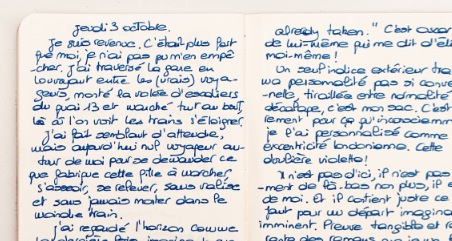 jeudi 3 octobre.
Je suis revenue. C'était plus fort
que moi, je n'ai pas pu m'en empê
-cher. J'ai traversé la gare en
louvoyant entre les (vrais) voya-
geurs, monté la volée d'escaliers
du quai 13 et marché tout au bout,
là où l'on voit les trains s'éloigner.
J'ai fait semblant d'attendre,
mais aujourd'hui nul voyageur au-
tour de moi pour se demander ce
que fabrique cette fille à marcher,
s'asseoir, se relever, sans valise
et sans jamais monter dans le
moindre train.
J'ai regardé l'horizon comme
already taken." C'est
de lui-même qui me dit d'
moi-même !
Un seul indice extérieur
ma personnalité pas si
-nelle, tiraillée entre normalité
décalage, c'est mon sac. C'est
rement pour ça qu'
je l'ai personnalisé comme
excentricité londonienne. Cette
doublure violette !
Il n'est pas d'ici, il n'est pas
-ment de là-bas non plus, il
de moi. Et il contient juste ce
faut pour un départ
imminent. Preuve tangible et